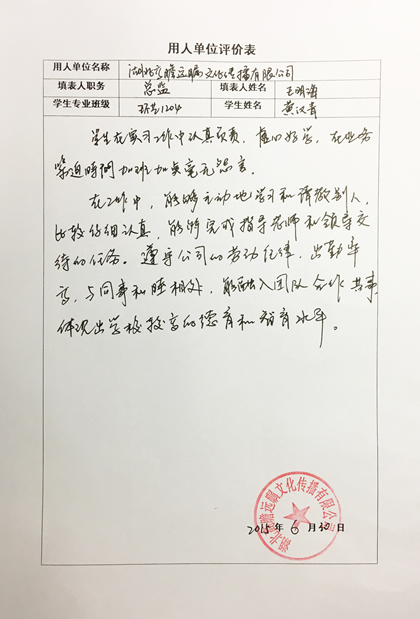 用人单位评价表
用人单位名称 湖北高瞻远瞩文化传播有限公司
填表人职务 总监 填表人姓名 王明海
学生专业班级 环艺1204 学生姓名 黄汉青
学生在实习工作中认真负责，虚心好学，在业务
紧迫时间加班加点毫无怨言。
在工作中，能够主动地学习和请教别人，
比较仔细认真，能够完成指导老师和领导交
待的任务。遵守公司的劳动纪律，出勤率
高，与同事和睦相处，能融入团队合作共事
体现出学校较高的德育和智育水平。
2015年6月30日